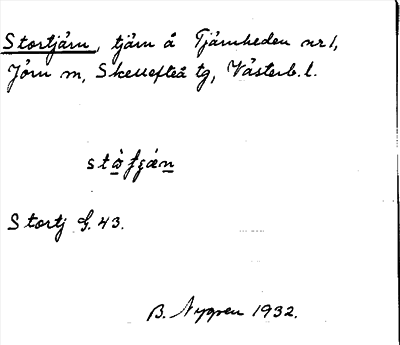 Stortjärn, tjärn å Tjärnheden nr 1,
Jörn sn, Skellefteå tg, Västerb. l.
Stortj G. 43.
B. Nygren 1932.